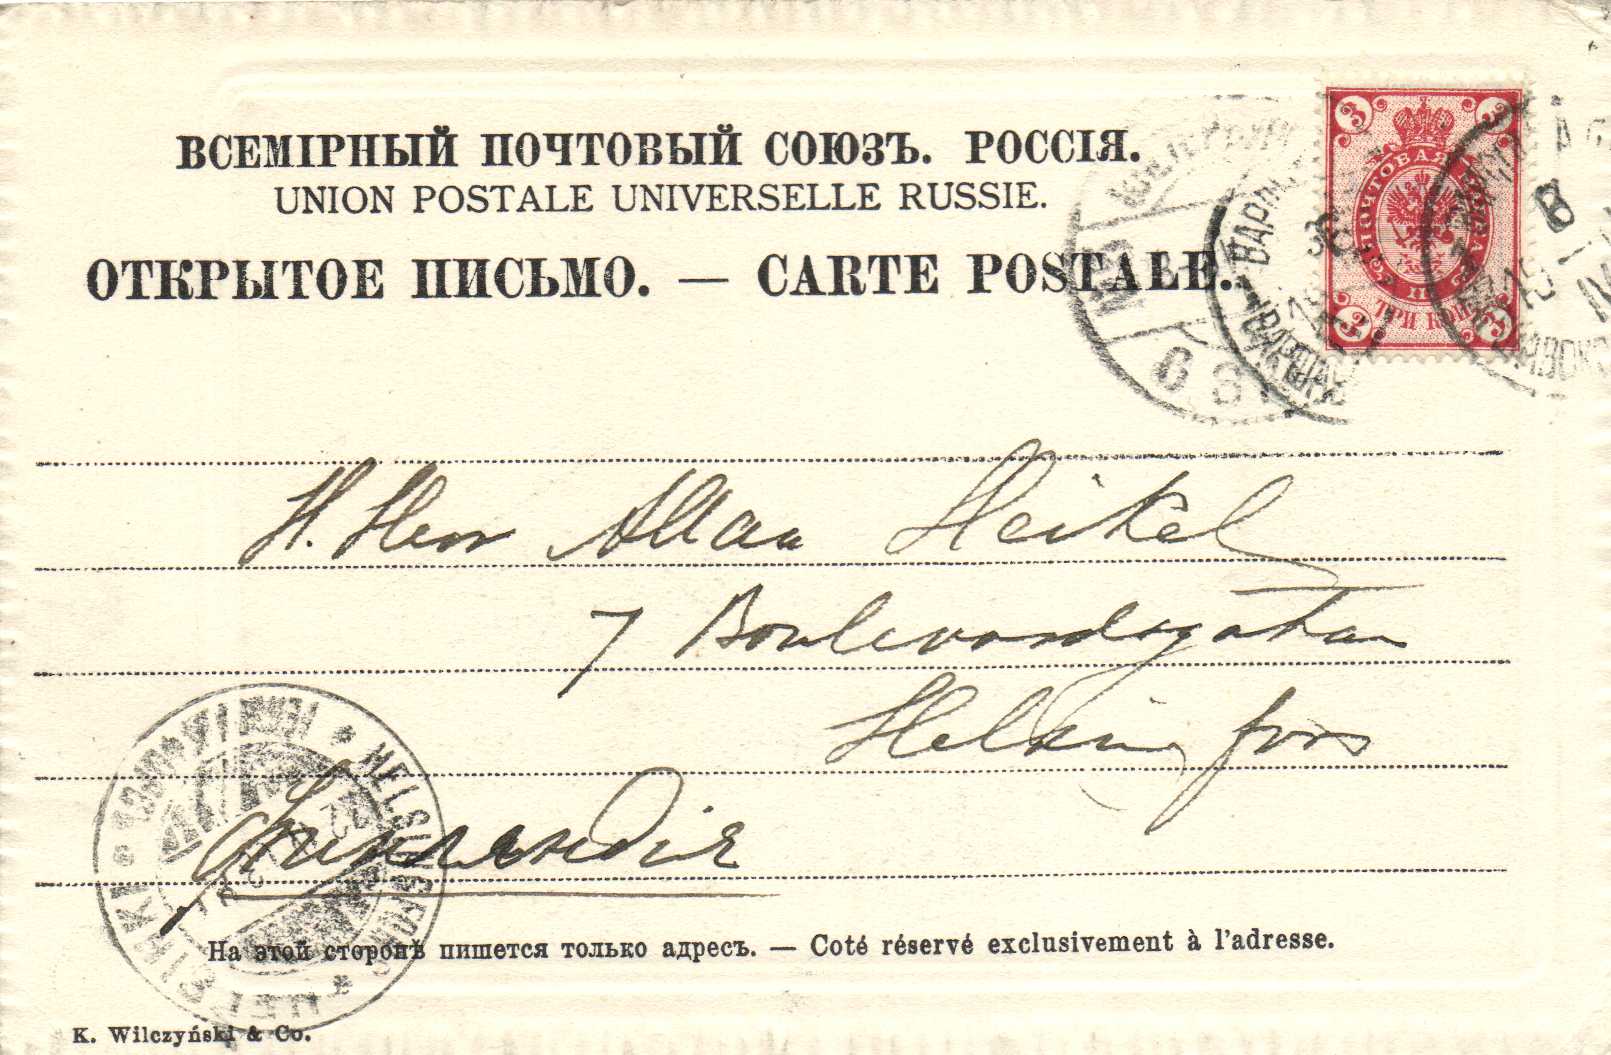 ВСЕМІРНЫЙ ПОЧТОВЫЙ СОЮЗЪ. РОССІЯ.
UNION POSTALE UNIVERSELLE RUSSIE.
ОТКРЫТОЕ ПИСЬМО. — CARTE POSTALE.
3 3
ПОЧТОВАЯ МАРКА
ТРИ КОП
3 3
H. Herr Allan Heikel
7 Boulevardsgatan
Helsingfors
Финляндія
HELSINGFORS
HELSINKI
На этой сторонѣ пишется только адресъ. — Coté réservé exclusivement à l'adresse.
K. Wilczyński & Co.